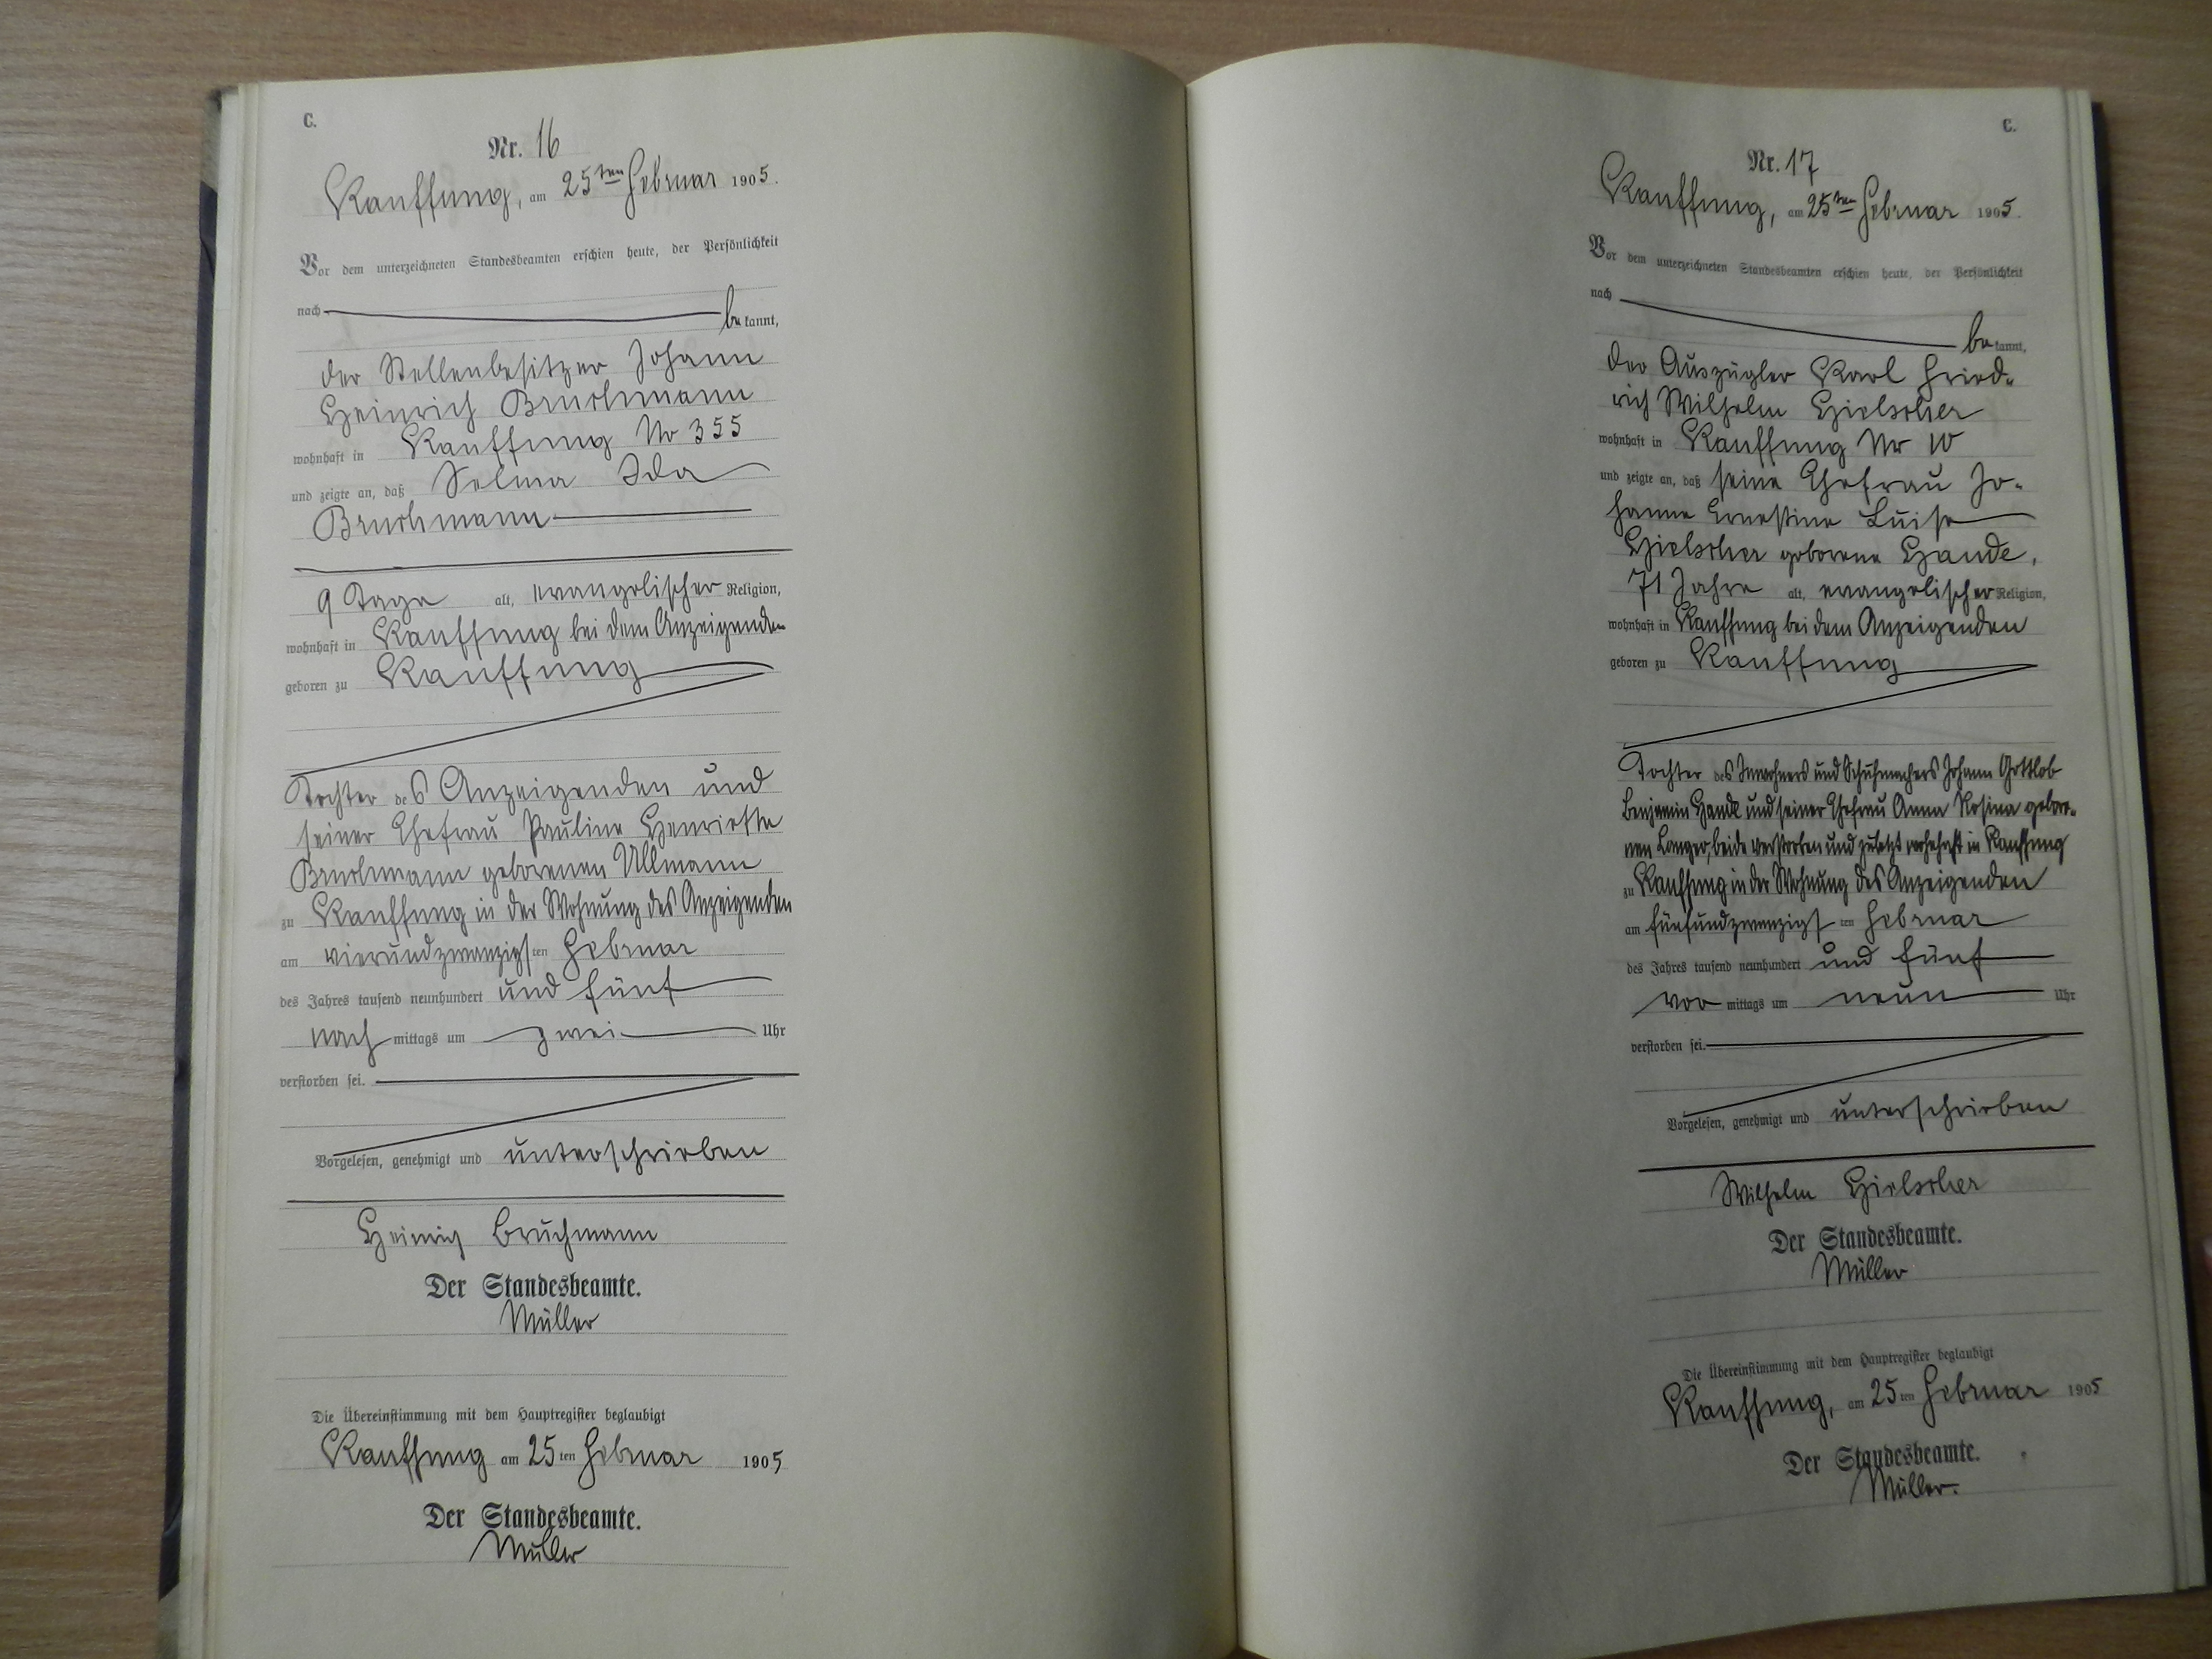 C.
Nr. 16
Kauffung, am 25ten Februar 1905.
Vor dem unterzeichneten Standesbeamten erschien heute, der Persönlichkeit
nach bekannt,
der Stellenbesitzer Johann
Heinrich Bruchmann
wohnhaft in Kauffung No 355
und zeigte an, daß Selma Ida
Bruchmann
9 Tage alt, evangelischer Religion,
wohnhaft in Kauffung bei dem Anzeigenden
geboren zu Kauffung
Tochter des Anzeigenden und
seiner Ehefrau Pauline Henriette
Bruchmann geborenen Ullmann
zu Kauffung in der Wohnung des Anzeigenden
am vierundzwanzigsten Februar
des Jahres tausend neunhundert und fünf
nachmittags um zwei Uhr
verstorben sei.
Vorgelesen, genehmigt und unterschrieben
Heinrich Bruchmann
Der Standesbeamte.
Müller
Die Übereinstimmung mit dem Hauptregister beglaubigt
Kauffung am 25ten Februar 1905
Der Standesbeamte.
Müller
C.
Nr. 17
Kauffung, am 25ten Februar 1905.
Vor dem unterzeichneten Standesbeamten erschien heute, der Persönlichkeit
nach bekannt,
der Auszügler Karl Fried-
rich Wilhelm Hielscher
wohnhaft in Kauffung Nr 10
und zeigte an, daß seine Ehefrau Jo-
hanne Ernestine Luise
Hielscher geborene Hande,
71 Jahre alt, evangelischer Religion,
wohnhaft in Kauffung bei dem Anzeigenden
geboren zu Kauffung
Tochter des Inwohners und Schuhmachers Johann Gottlob
Benjamin Hande und seiner Ehefrau Anna Rosina gebore-
nen Langer, beide verstorben und zuletzt wohnhaft in Kauffung
zu Kauffung in der Wohnung des Anzeigenden
am fünfundzwanzigsten Februar
des Jahres tausend neunhundert und fünf
vormittags um neun Uhr
verstorben sei.
Vorgelesen, genehmigt und unterschrieben
Wilhelm Hielscher
Der Standesbeamte.
Müller
Die Übereinstimmung mit dem Hauptregister beglaubigt
Kauffung, am 25ten Februar 1905
Der Standesbeamte.
Müller.